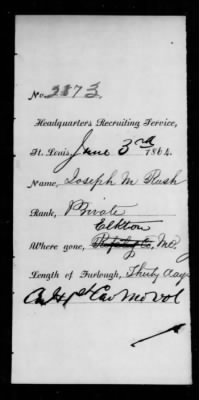 No. 2873
Headquarters Recruiting Service,
St. Louis, June 3rd 1864.
Name, Joseph M Rush
Rank, Private
Elkton
Where gone, Mo,
Length of Furlough, Thirty days
Mo Vol